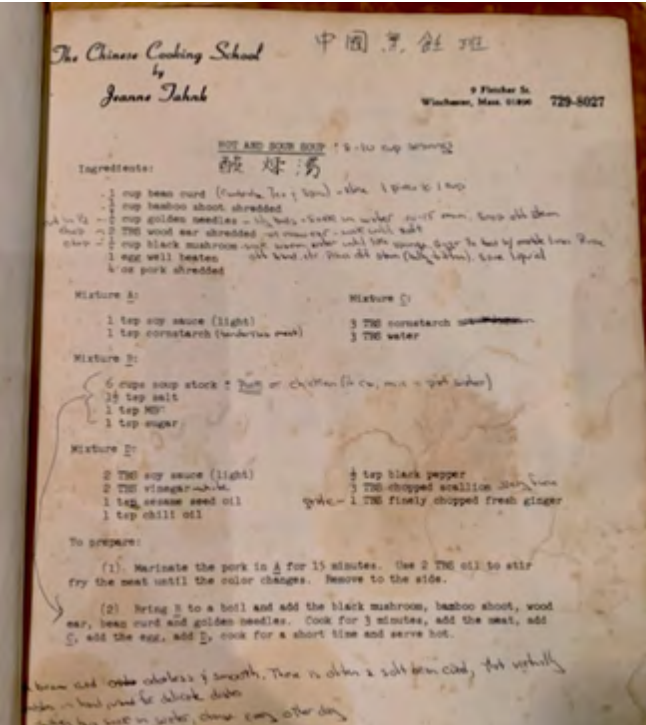 The Chinese Cooking School
by
Jeanne Tahnk
中國烹飪班
9 Fletcher St.
Winchester, Mass. 01890 729-8027
HOT AND SOUR SOUP 8-10 cup
酸 湯
Ingredients:
cup bean curd - 1 piece is 1 cup
cup bamboo shoot shredded
cup golden needles - soak in water
2 TBS wood ear shredded - until soft
cup black mushroom - warm water until
1 egg well beaten
4 oz pork shredded
Mixture A:
1 tsp soy sauce (light)
1 tsp cornstarch
Mixture C:
3 TBS cornstarch
3 TBS water
Mixture B:
6 cups soup stock pork or chicken
1½ tsp salt
1 tsp MSG
1 tsp sugar
Mixture D:
2 TBS soy sauce (light)
2 TBS vinegar - white
1 tsp sesame seed oil
1 tsp chili oil
tsp black pepper
3 TBS chopped scallion
1 TBS finely chopped fresh ginger
To prepare:
(1). Marinate the pork in A for 15 minutes. Use 2 TBS oil to stir
fry the meat until the color changes. Remove to the side.
(2) Bring B to a boil and add the black mushroom, bamboo shoot, wood
ear, bean curd and golden needles. Cook for 3 minutes, add the meat, add
C, add the egg, add D, cook for a short time and serve hot.
bean curd odorless & smooth. There is often a soft bean curd,
used for delicate dishes
soak in water, change every other day